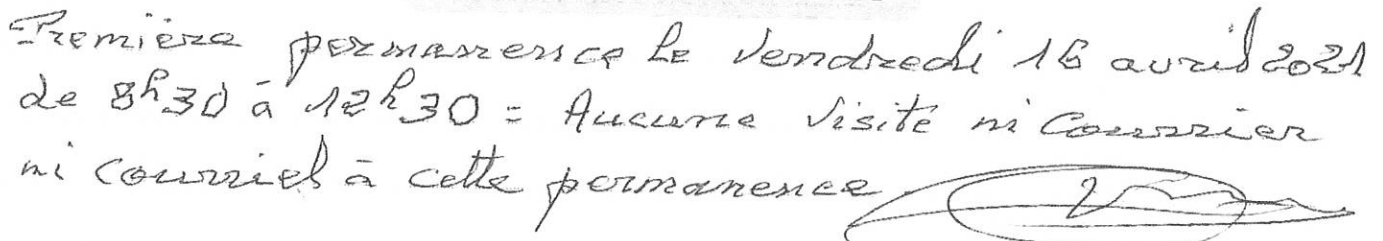 Première permanence le Vendredi 16 avril 2021
de 8h30 à 12h30 = Aucune Visite ni Courrier
ni courriel à cette permanence.